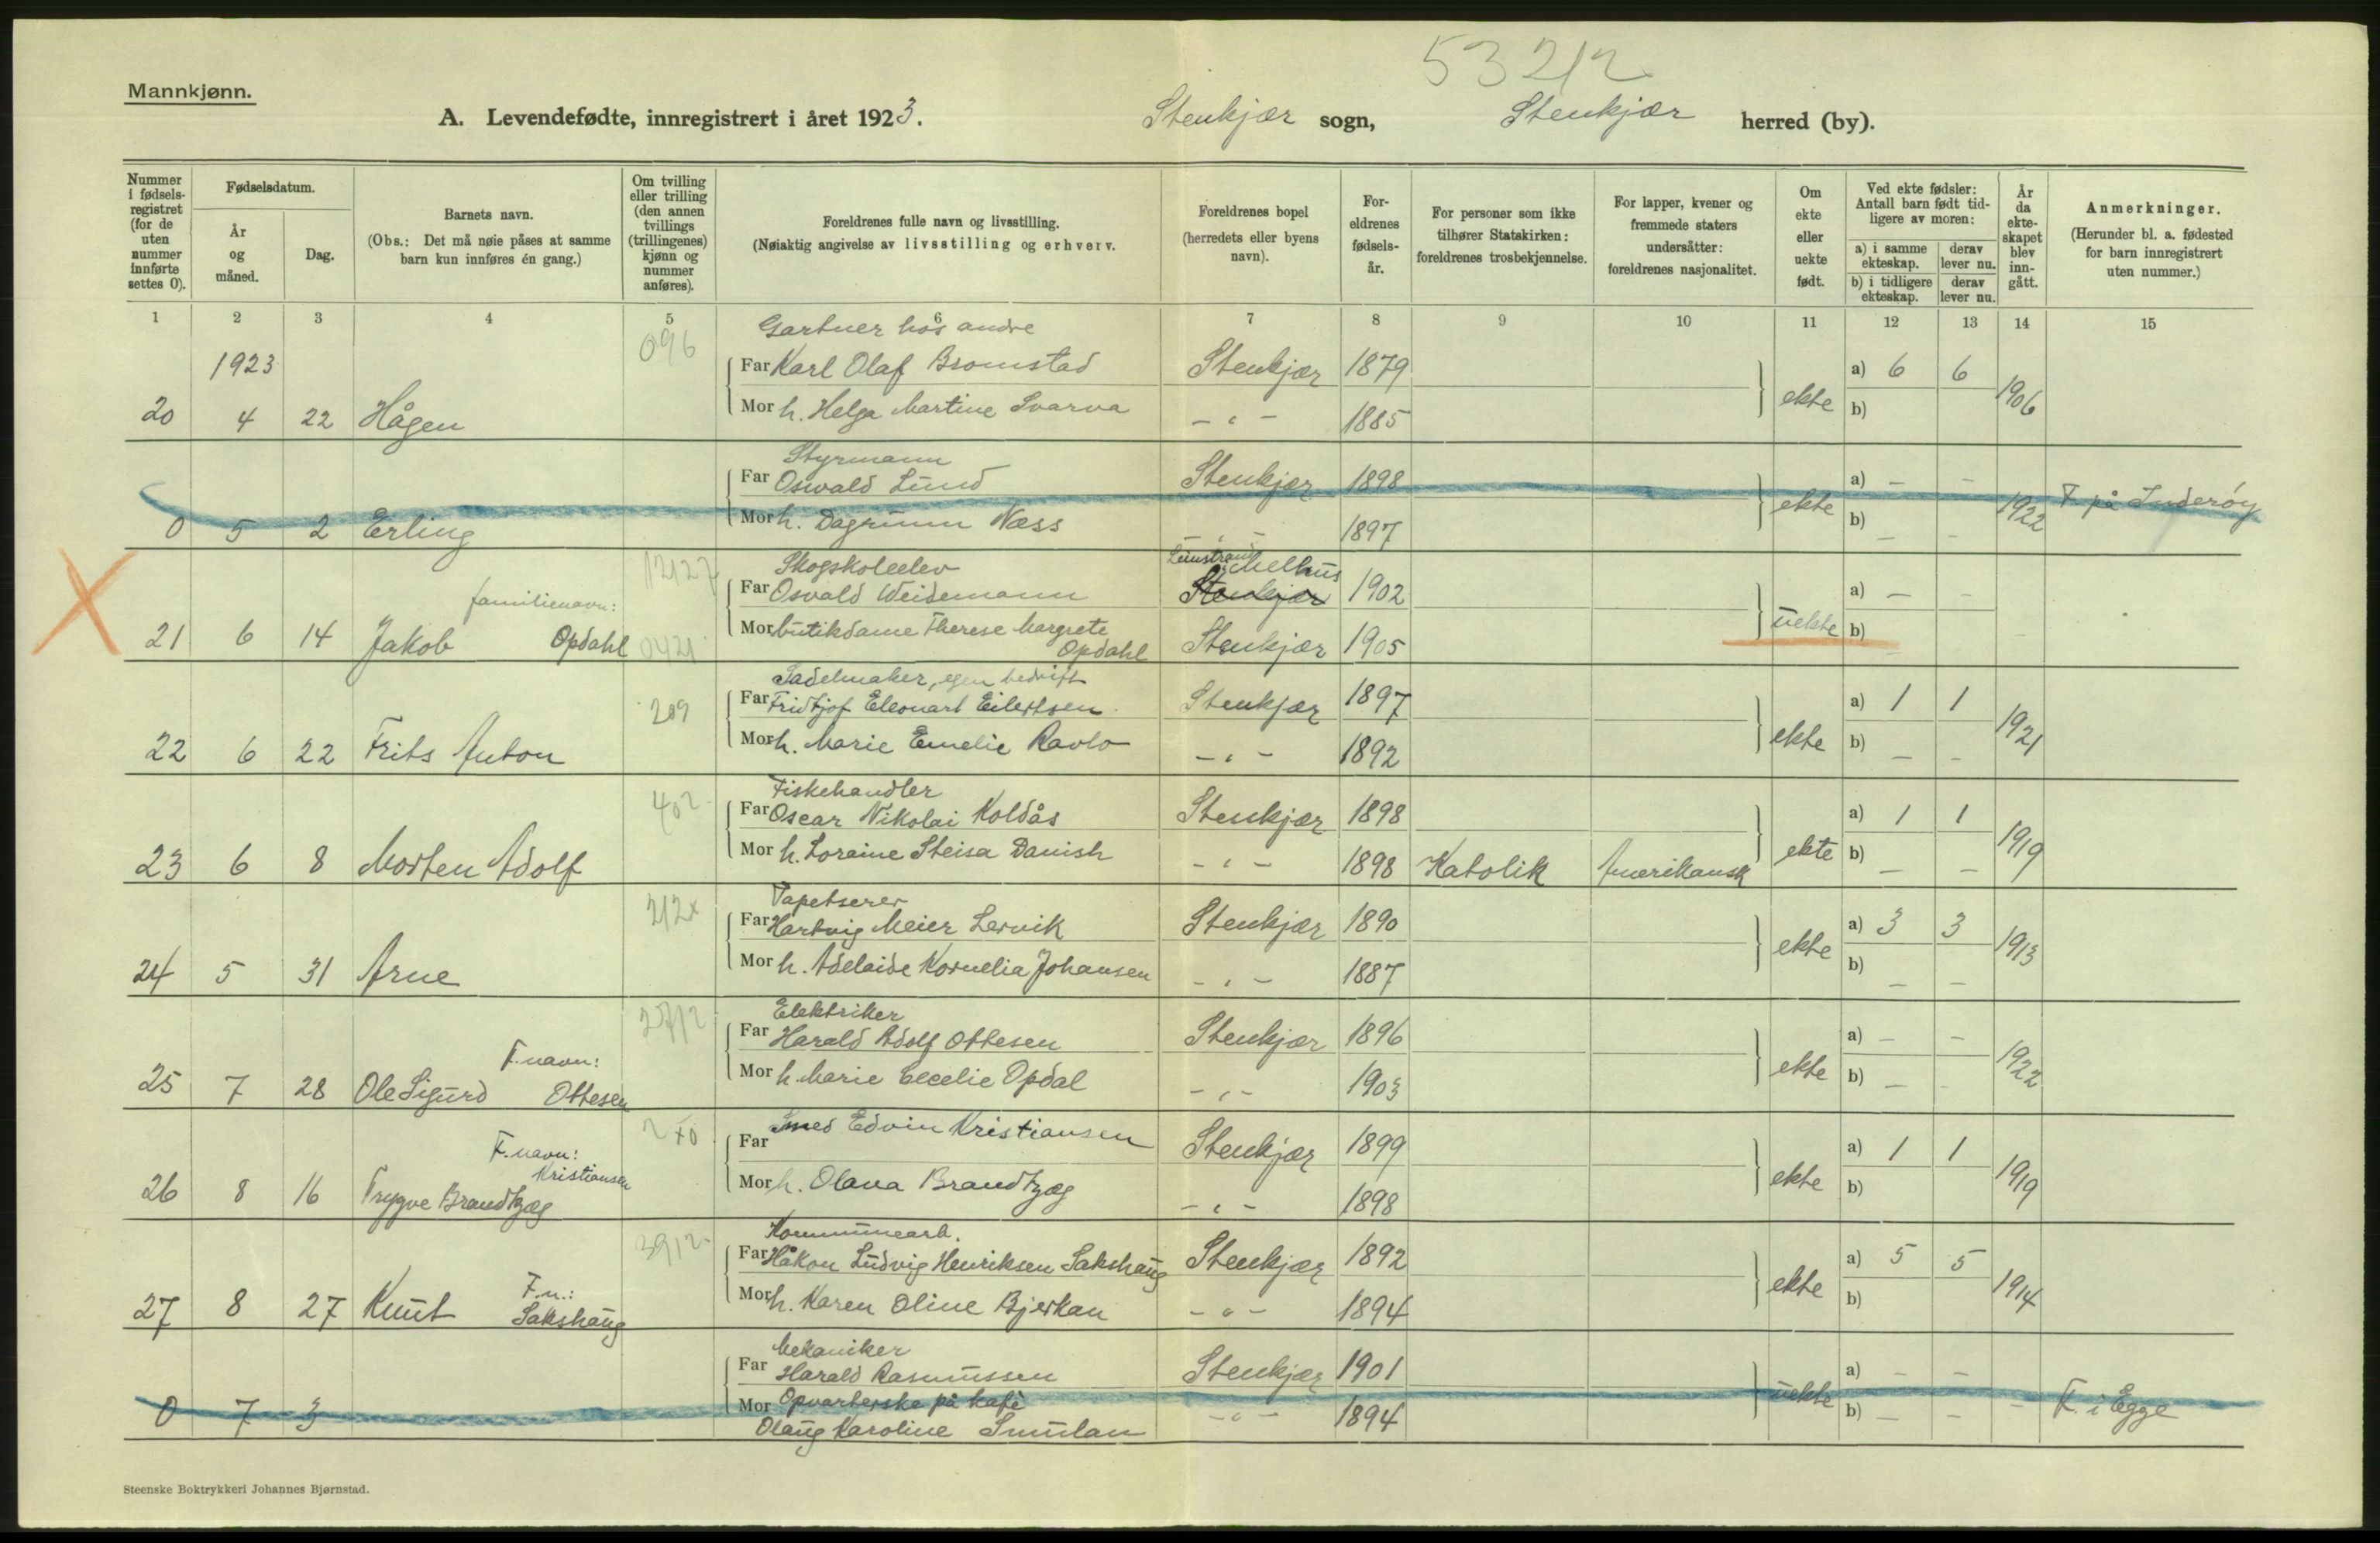 53212
Mannkjønn.
A. Levendefødte, innregistrert i året 1923. Stenkjær sogn, Stenkjær herred (by).
Nummer i fødsels-registret (for de uten nummer innførte settes 0).
Fødselsdatum.
År og måned.
Dag.
Barnets navn.
(Obs.: Det må nøie påses at samme barn kun innføres én gang.)
Om tvilling eller trilling (den annen tvillings (trillingenes) kjønn og nummer anføres).
Foreldrenes fulle navn og livsstilling.
(Nøiaktig angivelse av livsstilling og erhverv.
Foreldrenes bopel (herredets eller byens navn).
For-eldrenes fødsels-år.
For personer som ikke tilhører Statskirken: foreldrenes trosbekjennelse.
For lapper, kvener og fremmede staters undersåtter: foreldrenes nasjonalitet.
Om ekte eller uekte født.
Ved ekte fødsler: Antall barn født tid-ligere av moren:
a) i samme ekteskap. derav lever nu.
b) i tidligere ekteskap. derav lever nu.
År da ekte-skapet blev inn-gått.
Anmerkninger.
(Herunder bl. a. fødested for barn innregistrert uten nummer.)
1 2 3 4 5 6 7 8 9 10 11 12 13 14 15
Gartner hos andre
1923 096 Far Karl Olaf Bromstad Stenkjær 1879 a) 6 6
20 4 22 Hågen Mor h. Helga Martine Svarva - " - 1885 ekte b) 1906
Styrmann
Far Oswald Lund Stenkjær 1898 a) - -
0 5 2 Erling Mor h. Dagrunn Næss - " - 1897 ekte b) - - 1922 F. på Inderøy
12127 Skogskoleelev Leinstrand Melhus
Far Osvald Weidemann Stenkjær 1902 a) - -
familienavn:
21 6 14 Jakob Opdahl 0421 Mor butikdame Therese Margrete Opdahl Stenkjær 1905 uekte b) -
Sadelmaker, egen bedrift
209 Far Fridtjof Eleonart Eilertsen Stenkjær 1897 a) 1 1
22 6 22 Frits Anton Mor h. Marie Emelie Ravlo - " - 1892 ekte b) - - 1921
Fiskehandler
402 Far Oscar Nikolai Koldås Stenkjær 1898 a) 1 1
23 6 8 Morten Adolf Mor h. Loraine Steisa Danish - " - 1898 Katolik Amerikansk ekte b) - - 1919
Tapetserer
212x Far Hartvig Meier Lervik Stenkjær 1890 a) 3 3
24 5 31 Arne Mor h. Adelaide Kornelia Johansen - " - 1887 ekte b) - - 1913
Elektriker
2712 Far Harald Adolf Ottesen Stenkjær 1896 a) - -
F.navn:
25 7 28 Ole Sigurd Ottesen Mor h. Marie Cecelie Opdal - " - 1903 ekte b) - - 1922
2x0 Far Smed Edvin Kristiansen Stenkjær 1899 a) 1 1
F.navn: Kristiansen
26 8 16 Trygve Brandtzæg Mor h. Olava Brandtzæg - " - 1898 ekte b) 1919
Kommunearb.
3912 Far Håkon Ludvig Henriksen Sakshaug Stenkjær 1892 a) 5 5
F.n.:
27 8 27 Knut Sakshaug Mor h. Karen Oline Bjerkan - " - 1894 ekte b) 1914
Mekaniker
Far Harald Rasmussen Stenkjær 1901 a) - -
0 7 3 Mor Opvarterske på kafé - " - 1894 uekte b) - - - F. i Egge
Olaug Karoline Smulan
Steenske Boktrykkeri Johannes Bjørnstad.